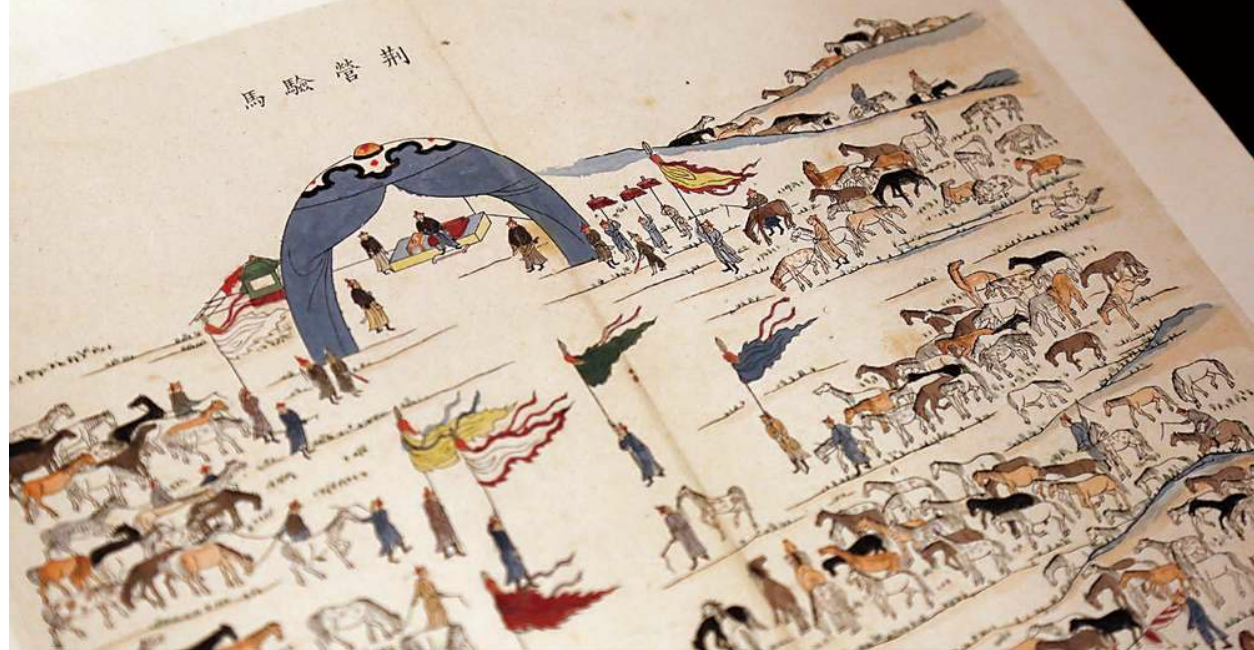 荆營驗馬